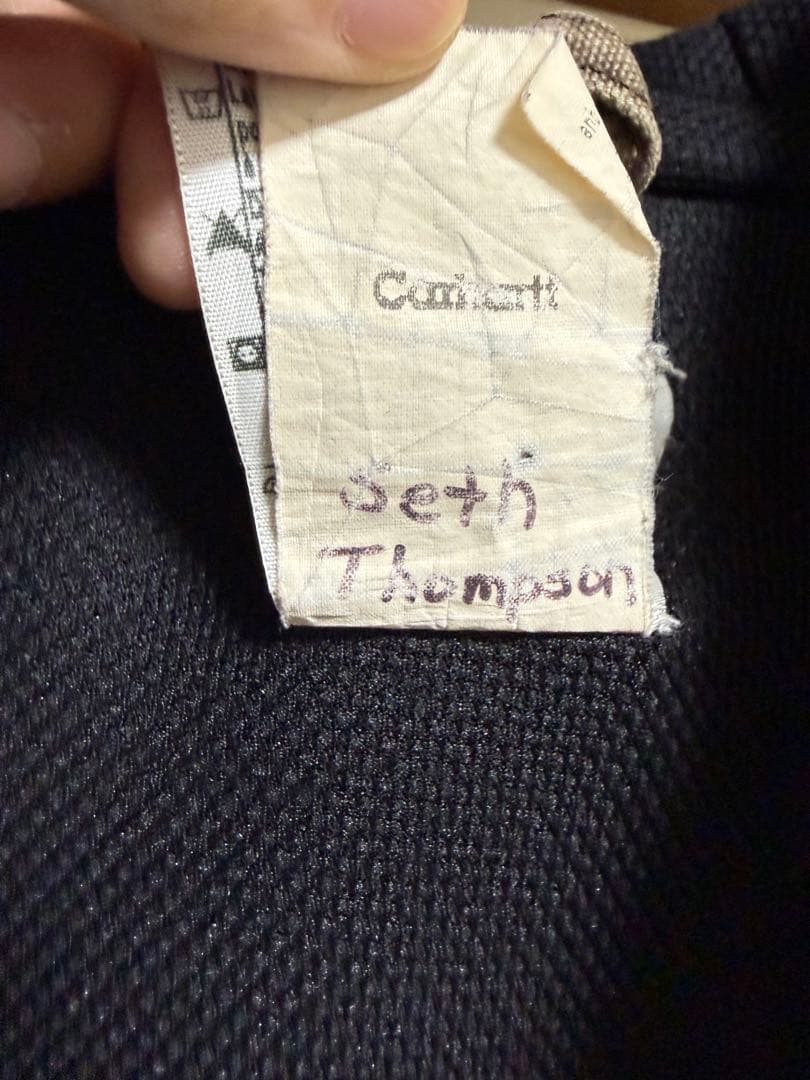 Carhartt
Seth
Thompson